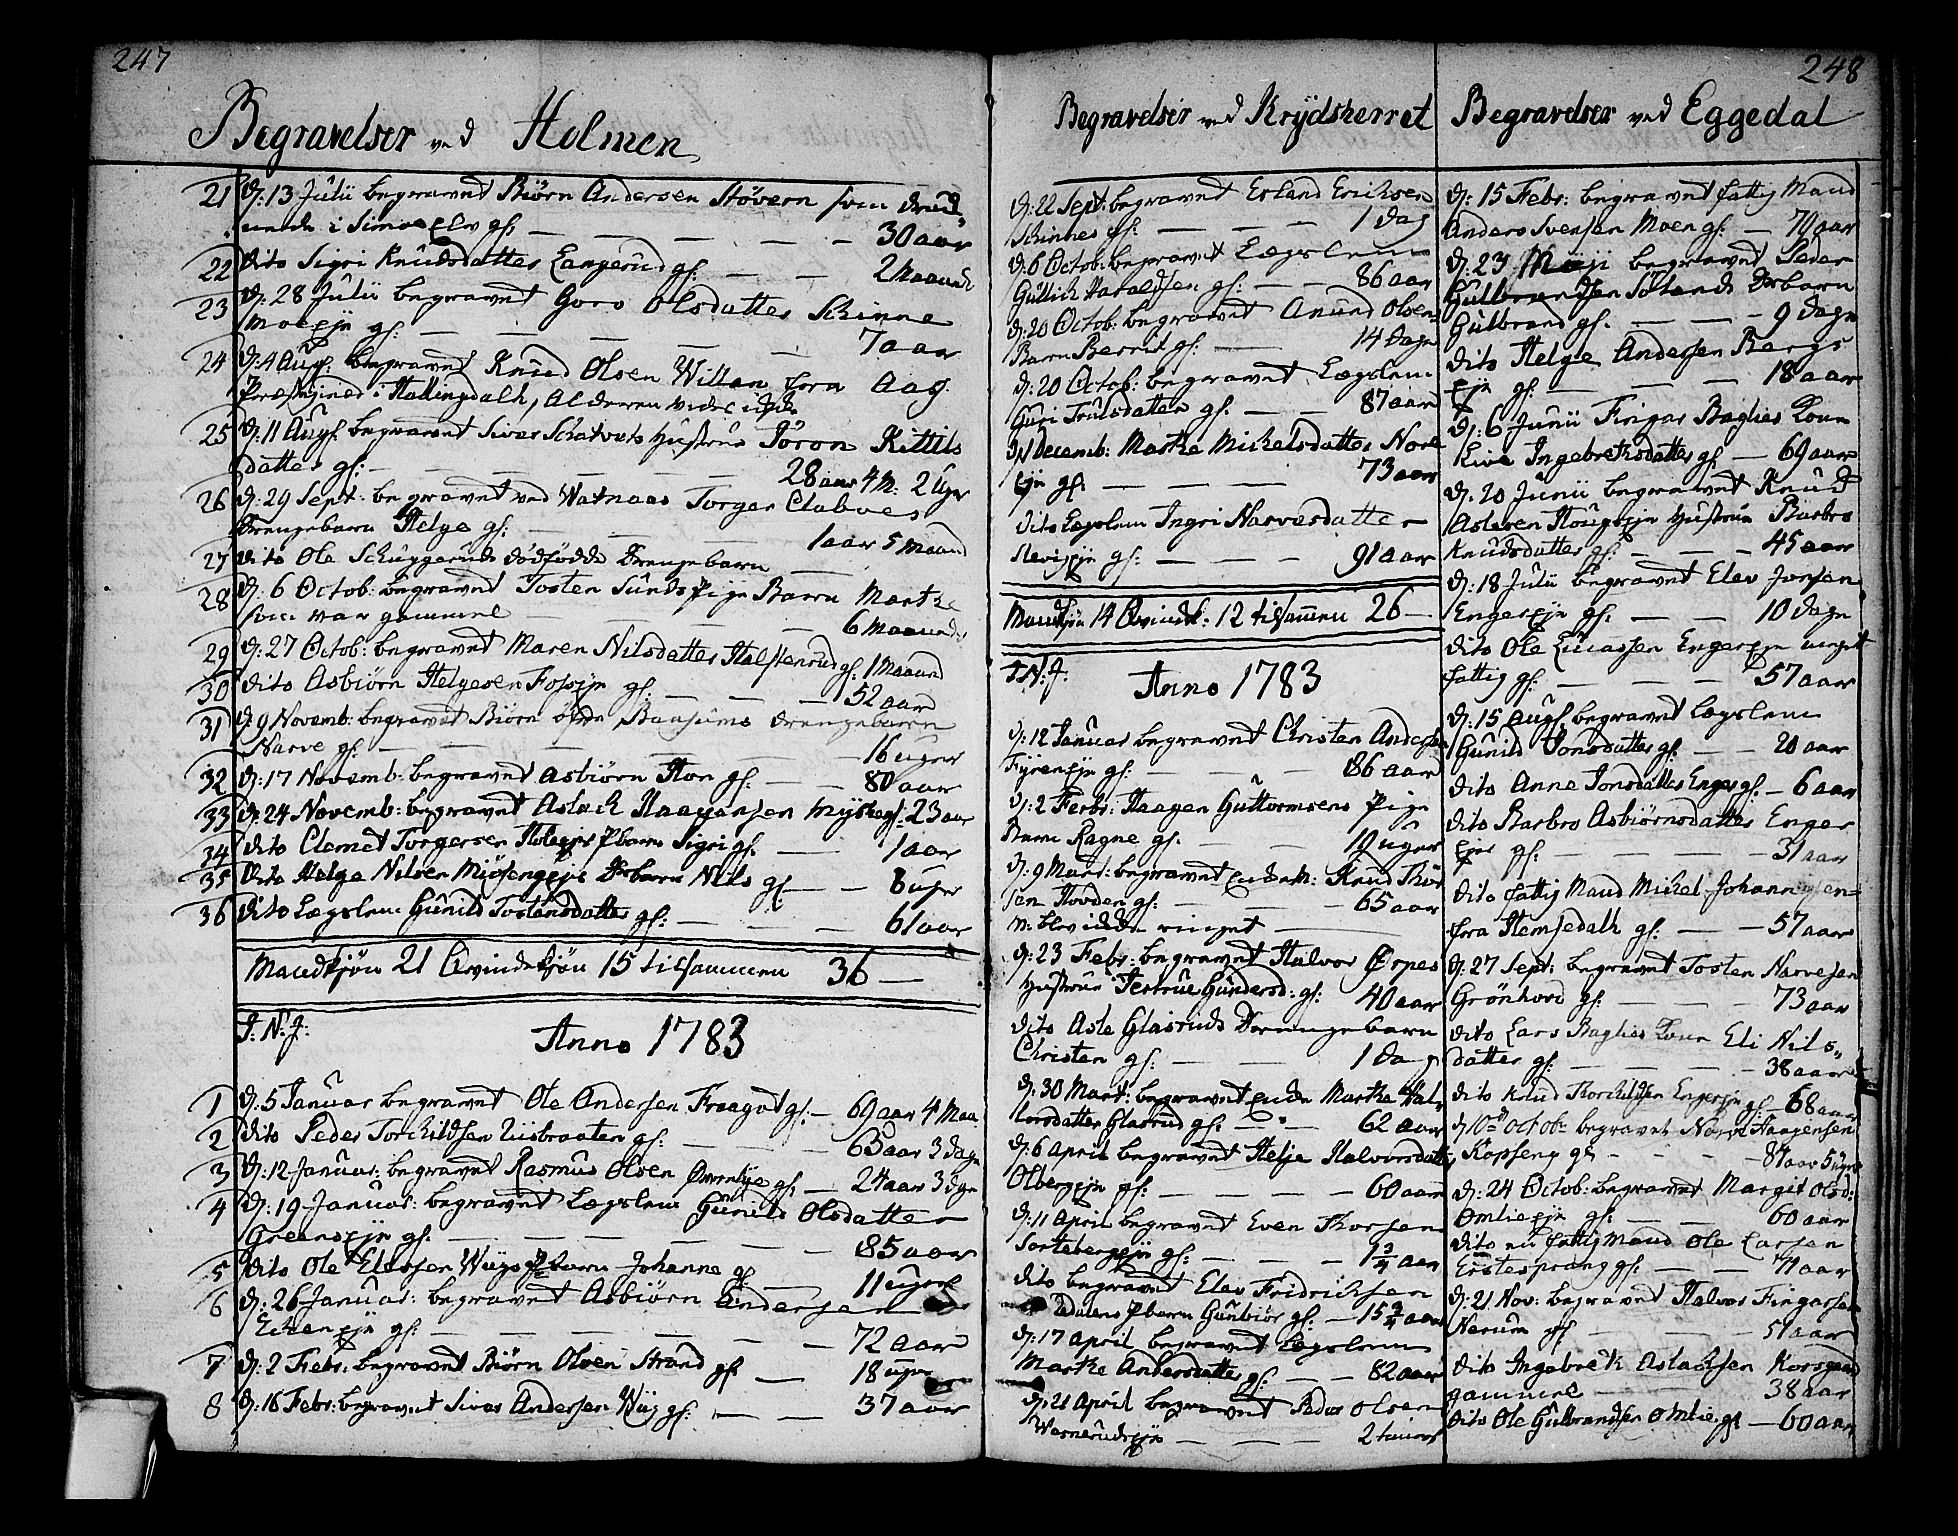 247
Begravelser ved Holmen
21 d: 13 Julii begravet Biørn Andersen Støvern som drud
nede i Simoe Elv gl: — 30 aar
22 dito Sigri Knudsdatter Langerud gl: — 2 Maaned
23 d: 28 Julii begravet Goro Olsdatter Skinne
Moe eje gl: — 7 aar
24 d: 4 Aug: begravet Knud Olsen Villan fra Aag
Præstegield i Hallingdahl, Alderen vides ikke
25 d: 11 Aug: begravet Siver Schatvets Hustrue Jøron Kittils
datter gl: — 28 aar 4 M: 2 Uger
26 d: 29 Sept: begravet ved Watnaas Torger Claboes
Drengebarn Helge gl: — 1 aar 5 Maaned
27 dito Ole Schuggeruds dødfødde Drengebarn —
28 d: 6 Octob: begravet Tosten Sunds Pige Barn Marthe
som var gammel — 6 Maaneder
29 d: 27 Octob: begravet Maren Nilsdatter Halstenrud gl: 1 Maaned
30 dito Asbiørn Helgesen Fosseje gl: — 52 aar
31 d: 9 Novemb: begravet Biørn øfre Bausums drengebarn
Narve gl: — 16 uger
32 d: 17 Novemb: begravet Asbiørn Hoe gl: — 80 aar
33 d: 24 Novemb: begravet Aslack Haagensen Myhre gl: 23 aar
34 dito Clemet Torgersen P barn Sigri gl: — 1 aar
35 Dito Helge Nilsen Miøsengeje D barn Nils gl: — 8 uger
36 dito Lægslem Gunild Tostensdatter gl: — 61 aar
Mandkjøn 21 Qvindekjøn 15 tilsammen 36 —
J. N. J. Anno 1783
1 d: 5 Januar begravet Ole Andersen Fraagot gl: — 69 aar 4 Maa
2 dito Peder Torchildsen Uisbraaten gl: — 63 aar 3 dage
3 d: 12 Januar: begravet Rasmus Olsen gl: — 24 aar 3 dge
4 d: 19 Januar: begravet Lægslem Gunild Olsdatter
Greenseje gl: — 85 aar
5 dito Ole Elersen Wiigs P barn Johanne gl: — 11 uger
6 d: 26 Januar: begravet Asbiørn Andersen
gl: — 72 aar
7 d: 2 Febr: begravet Biørn Olsen Strand gl: — 18 uger
8 d: 16 Febr: begravet Siver Andersen Wiig gl: — 37 aar
Begravelser ved Krydsherret
d: 22 Sept: begravet Erland Ericksen
Skinnes gl: — 1 dag
d: 6 Octob: begravet Lægslem
Gullich Haraldsen gl: — 86 aar
d: 20 Octob: begravet Anund Olsens
Barn Berrit gl: — 14 dage
d: 20 Octob: begravet Lægslem
Guri Trulsdatter gl: — 87 aar
d: 1 Decemb: Marthe Mickelsdatter Nore
Eje gl: — 73 aar
dito Lægslem Ingri Narvesdatter —
Sleviseje gl: — 91 aar
Mandkjøn 14 Qvindk: 12 tilsammen 26 —
J. N. J. Anno 1783
d: 12 Januar begravet Christen Andersen
Fyreneje gl: — 86 aar
d: 2 Febr: Haagen Guttormsens Pige
Barn Ragne gl: — 10 uger
d: 9 Mart: begravet Knud Thor
sen Hovden gl: — 65 aar
N: blev ikke ringet —
d: 23 Febr: begravet Halvor Ørpes
Hustrue Jertrue Gundersd: gl: 40 aar
dito Asle Glasruds Drengebarn
Christen gl: — 1 dag
d: 30 Mart: begravet Enke Marthe Hal,
vorsdatter Glasrud gl: — 62 aar
d: 6 April begravet Helje Halvorsdatter
Olbergeje gl: — 60 aar
d: 11 April begravet Even Thorsen
Sortebergeje gl: — 1 3/4 aar
dito begravet Elev Fridricksen
P barn Gunbiør gl: — 15 3/4 aar
d: 17 April begravet Lægslem
Marthe Andersdatter gl: — 82 aar
d: 21 April begravet Peder Olsen
Wernerudseje — 2 timer
248
Begravelser ved Eggedal
d: 15 Febr: begravet fattig Mand
Anders Svensen Moen gl: — 70 aar
d: 23 Maji begravet Peder
Gulbrandsen Sølands D barn
Gulbrand gl. — 9 dage
dito Helge Andersen Bergs
Eje gl: — 18 aar
d: 6 Junii Fingar Baglies Kone
Live Ingebrethsdatter gl — 69 aar
d: 20 Junii begravet Knud
Aslesen Hougseje Hustrue Barbro
Knudsdatter gl: — 45 aar
d: 18 Julii begravet Elev Jonsen
Engereje gl: — 10 dage
dito Ole Lucassen Engereje meget
fattig gl: — 57 aar
d: 15 Aug: begravet Lægslem
Gunild Jonsdatter gl: — 20 aar
dito Anne Jonsdatter Enger gl: — 6 aar
dito Barbro Asbiørnsdatter Enger
Eje gl: — 31 aar
dito fattig Mand Mickel Johannesen=
fra Hemsedalh gl: — 57 aar
d: 27 Sept: begravet Tosten Narvesen
Grønhovd gl: — 73 aar
dito Lars Baglies Kone Eli Nils,,
datter gl: — 38 aar
dito Knud Thorchildsen Engereje gl: 68 aar
d: 10de Octob: begravet Narve Haagensen
Kopseng gl: — 87 aar 5 uger
d: 24 Octob: begravet Margit Olsd:
Omlieeje gl: — 60 aar
dito en fattig Mand Ole Larsen
Ertesprang gl: — 71 aar
d: 21 Nov: begravet Halvor Fingarsen
Nerum gl: — 51 aar
dito Ingebreth Aslachsen Korsgaard
gammel — 38 aar
dito Ole Gulbrandsen Omlie gl — 60 aar